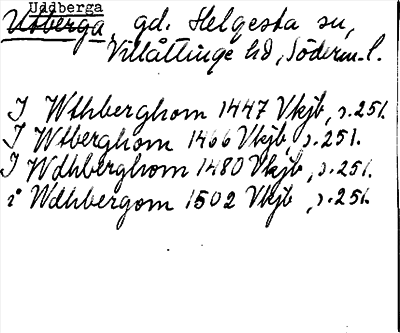 Uddberga
Utberga, gd. Helgesta sn,
Villåttinge hd, Söderm. l.
I Wthberghom 1447 Vkjb, s. 251.
I Wtberghom 1466 Vkjb, s. 251.
I Wdhberghom 1480 Vkjb, s. 251.
i Wdhbergom 1502 Vkjb, s. 251.